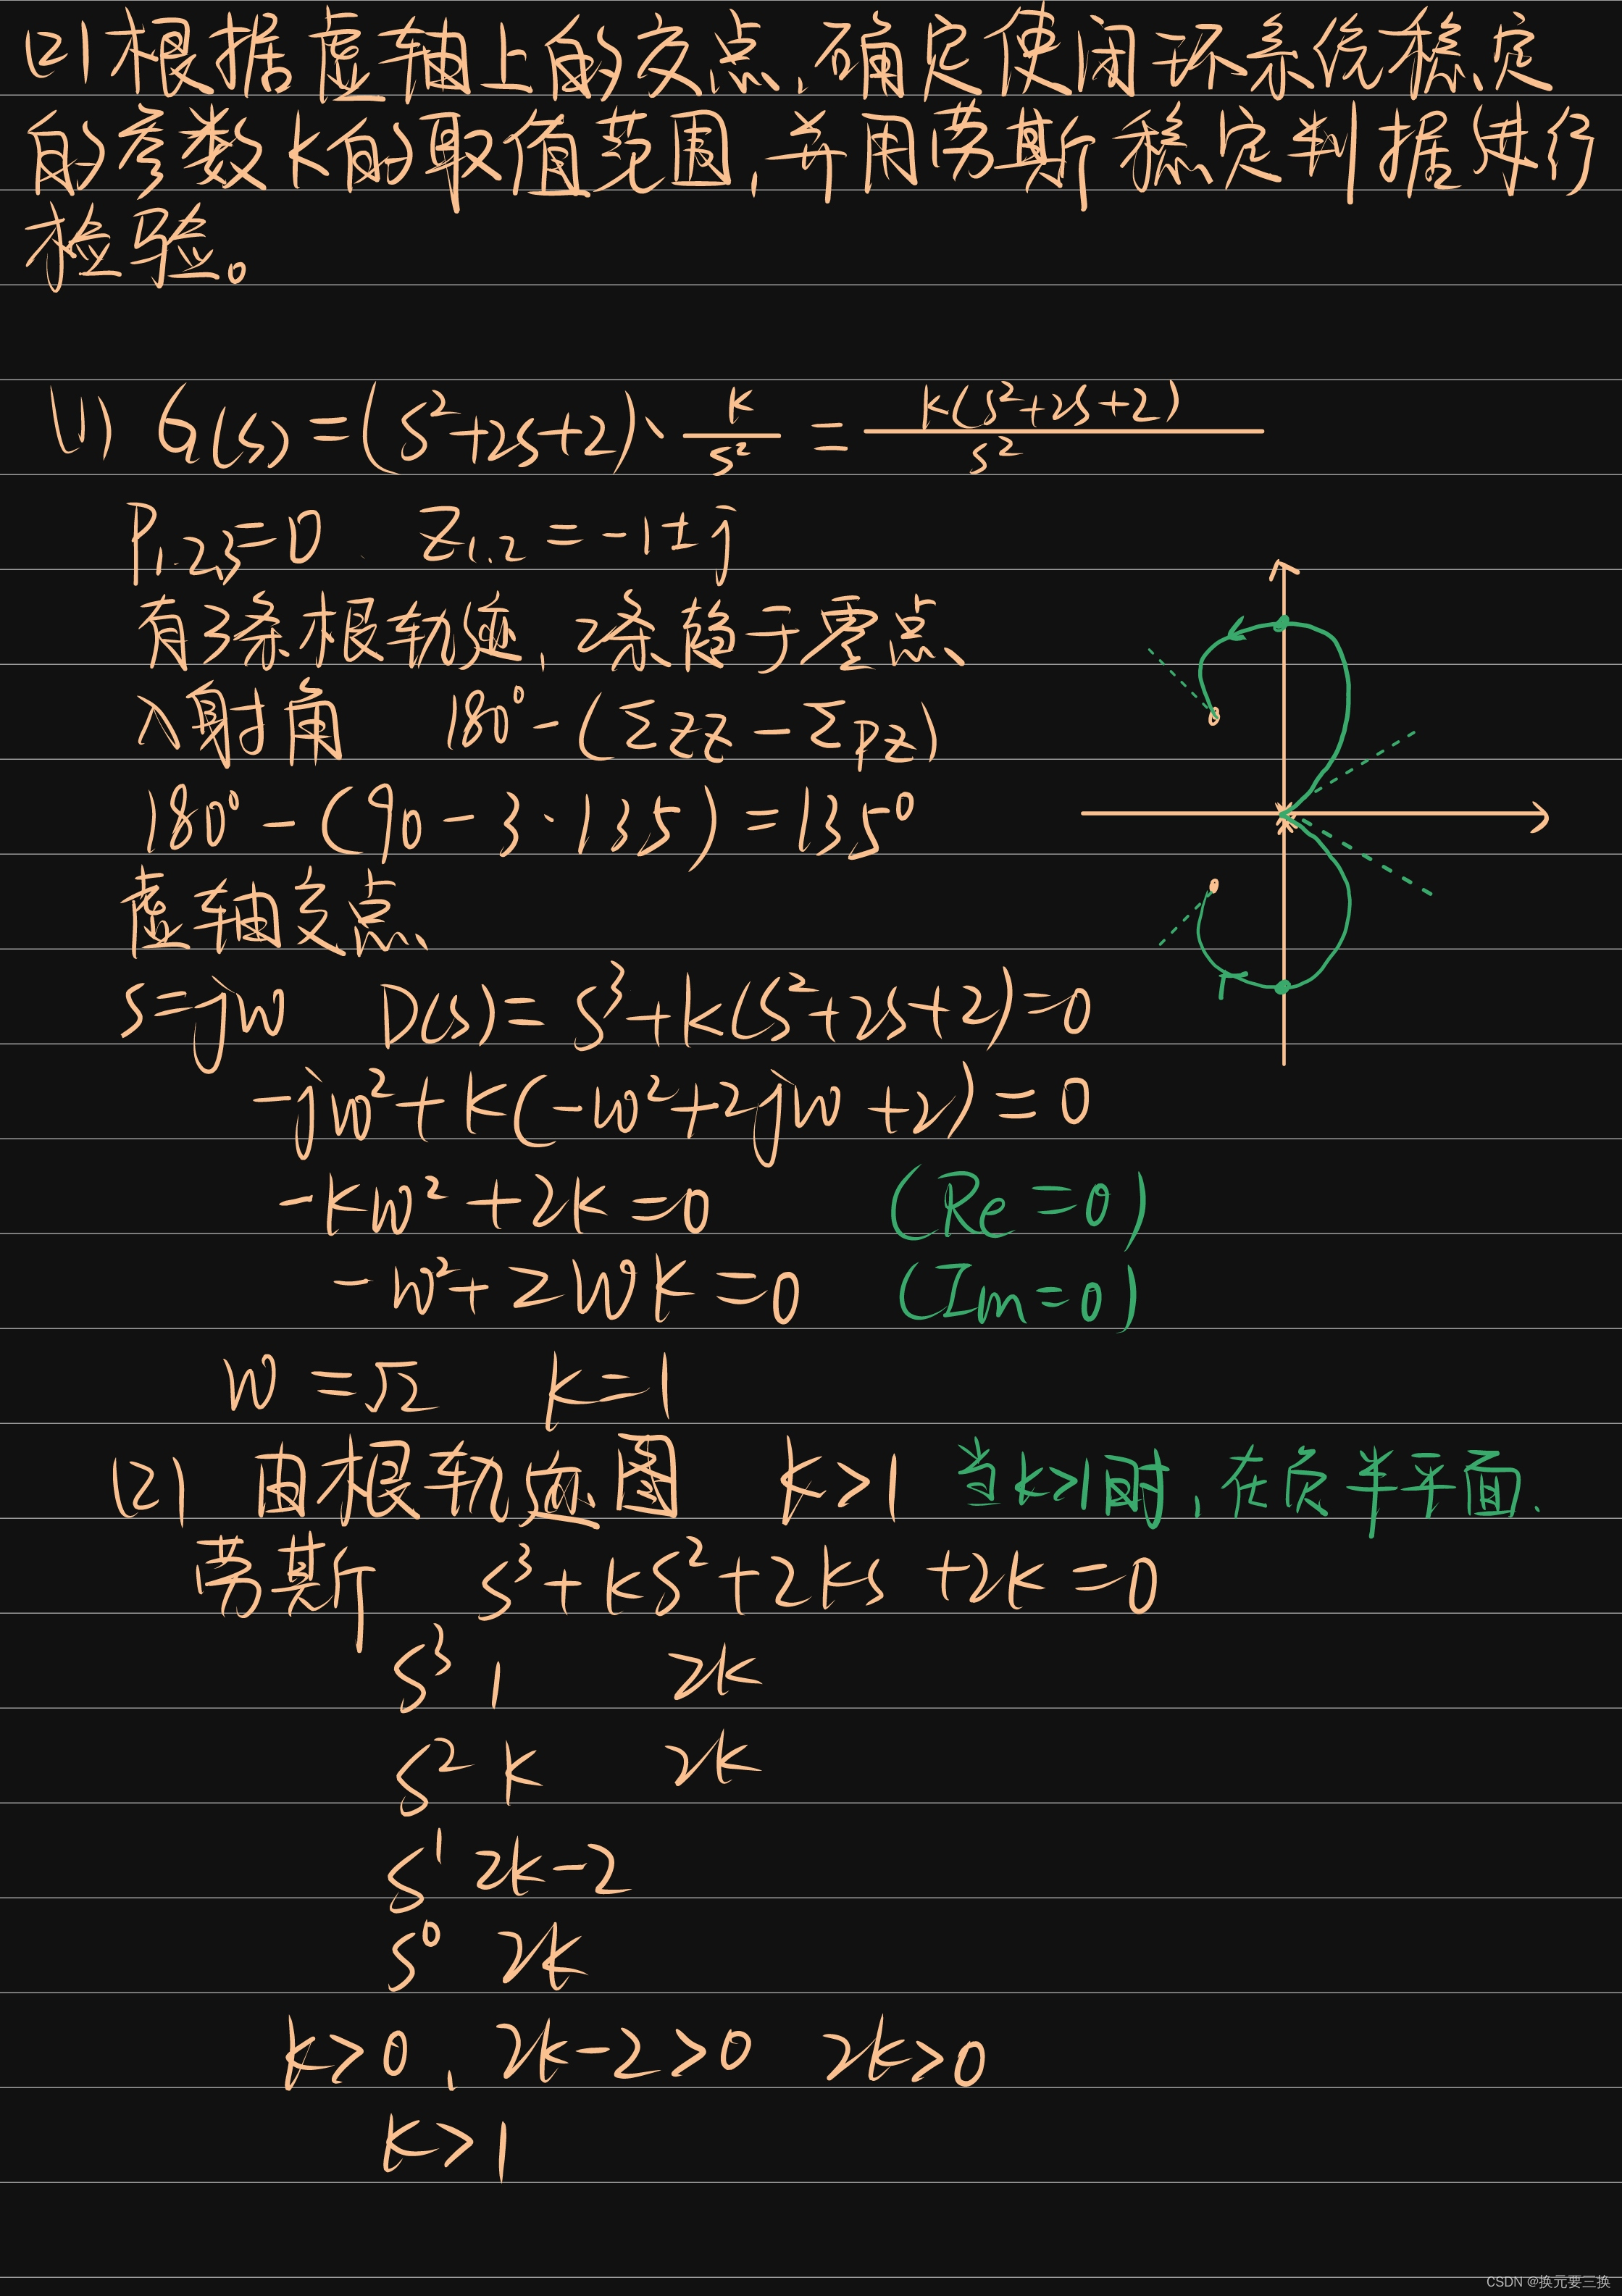 (2)根据虚轴上的交点,确定使闭环系统稳定
的参数K的取值范围,并用劳斯稳定判据进行
检验。
(1) G(s)=(s²+2s+2)·k/s² = k(s²+2s+2)/s²
P₁.₂,₃=0 Z₁.₂=-1±j
有3条根轨迹,2条趋于零点
入射角 180°-(Σzz-Σpz)
180°-(90-3·135)=135°
虚轴交点
s=jw D(s)=s³+k(s²+2s+2)=0
-jw²+k(-w²+2jw+2)=0
-kw²+2k=0 (Re=0)
-w²+2wk=0 (Im=0)
w=√2 k=1
(2) 由根轨迹图 k>1 当k>1时,在负半平面.
劳斯 s³+ks²+2ks+2k=0
s³ 1 2k
s² k 2k
s¹ 2k-2
s⁰ 2k
k>0, 2k-2>0 2k>0
k>1
CSDN @换元要三换